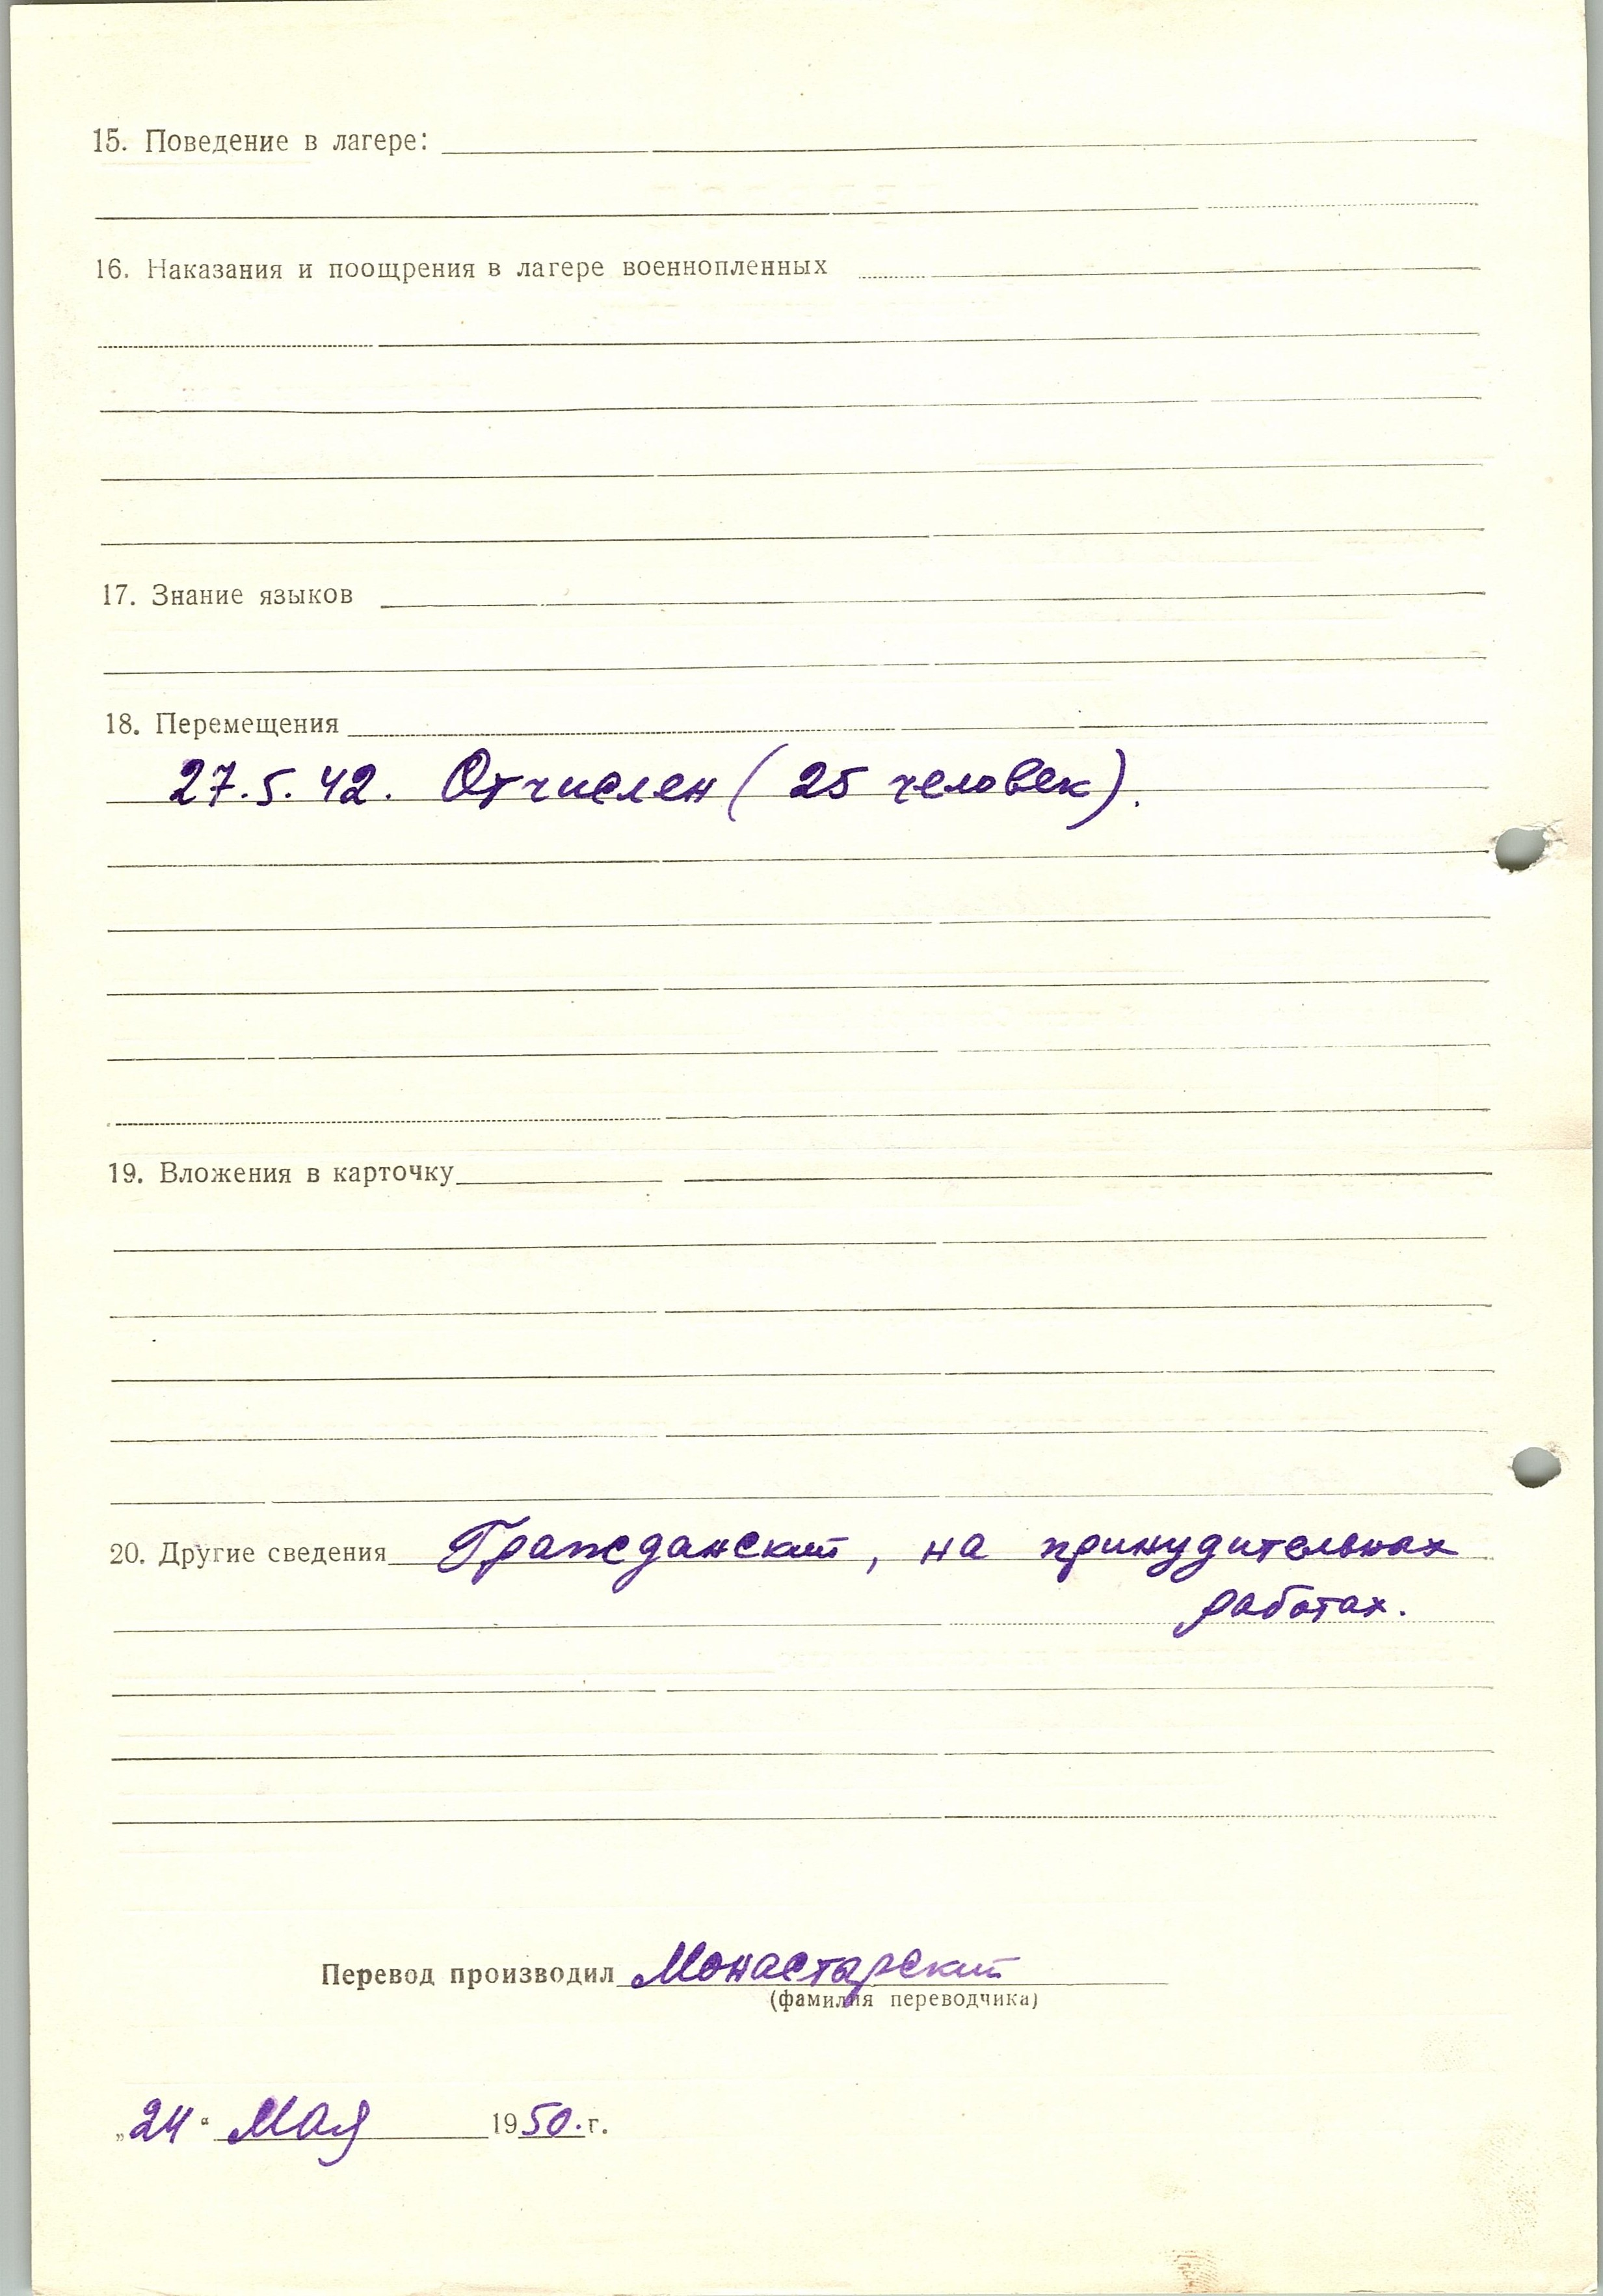 15. Поведение в лагере:
16. Наказания и поощрения в лагере военнопленных
17. Знание языков
18. Перемещения
27.5.42. Отчислен (25 человек).
19. Вложения в карточку
20. Другие сведения Гражданский, на принудительных
работах.
Перевод производил Монастарский
(фамилия переводчика)
„24“ Мая 1950.г.